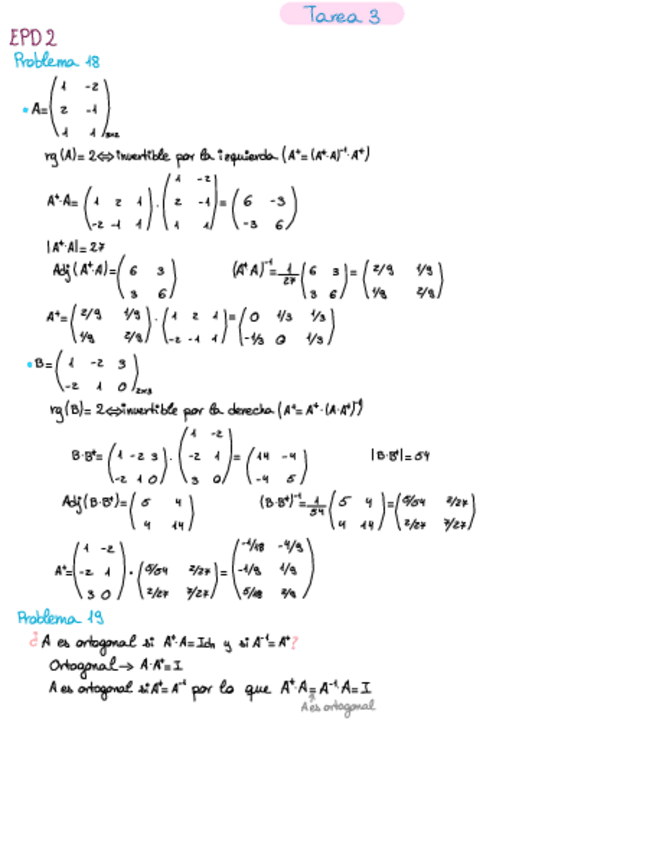 Tarea 3
EPD 2
Problema 18
• A = ( 1 -2
2 -1
1 1 )3x2
rg(A) = 2 ⇔ invertible por la izquierda (A⁺ = (Aᵗ·A)⁻¹·Aᵗ)
Aᵗ·A = ( 1 2 1 / -2 -1 1 ) · ( 1 -2 / 2 -1 / 1 1 ) = ( 6 -3 / -3 6 )
|Aᵗ·A| = 27
Adj(Aᵗ·A) = ( 6 3 / 3 6 ) (Aᵗ A)⁻¹ = 1/27 ( 6 3 / 3 6 ) = ( 2/9 1/9 / 1/9 2/9 )
A⁺ = ( 2/9 1/9 / 1/9 2/9 ) · ( 1 2 1 / -2 -1 1 ) = ( 0 1/3 1/3 / -1/3 0 1/3 )
• B = ( 1 -2 3
-2 1 0 )2x3
rg(B) = 2 ⇔ invertible por la derecha (A⁺ = Aᵗ·(A·Aᵗ)⁻¹)
B·Bᵗ = ( 1 -2 3 / -2 1 0 ) · ( 1 -2 / -2 1 / 3 0 ) = ( 14 -4 / -4 5 ) |B·Bᵗ| = 54
Adj(B·Bᵗ) = ( 5 4 / 4 14 ) (B·Bᵗ)⁻¹ = 1/54 ( 5 4 / 4 14 ) = ( 5/54 2/27 / 2/27 7/27 )
A⁺ = ( 1 -2 / -2 1 / 3 0 ) · ( 5/54 2/27 / 2/27 7/27 ) = ( -1/18 -4/9 / -1/9 1/9 / 5/18 2/9 )
Problema 19
¿A es ortogonal si Aᵗ·A = Idn y si A⁻¹ = Aᵗ?
Ortogonal → A·Aᵗ = I
A es ortogonal si Aᵗ = A⁻¹ por lo que Aᵗ·A = A⁻¹·A = I
A es ortogonal